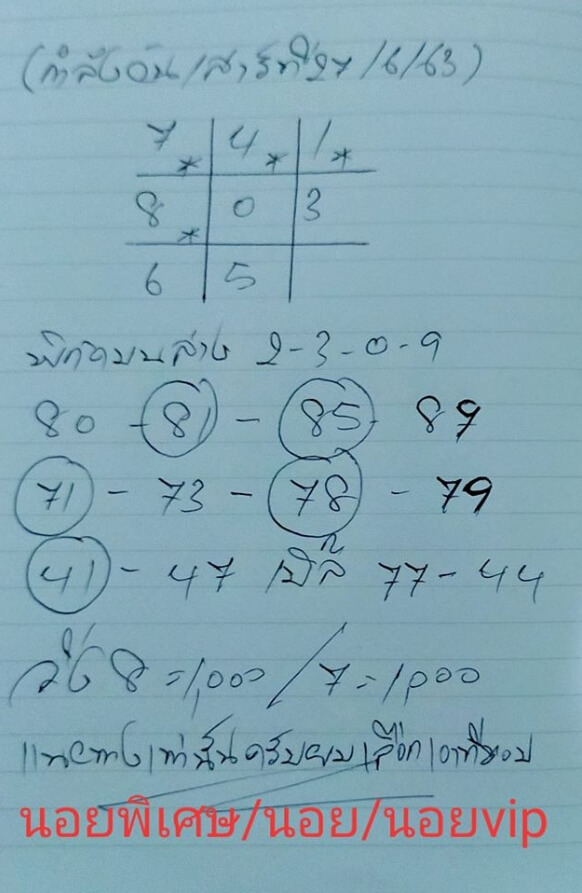 (กำลังวัน/เสาร์ที่27/6/63)
7* 4* 1*
8* 0 3
6 5
พิกัดบนล่าง 2-3-0-9
80-81-85-89
71-73-78-79
41-47 เบิ้ล 77-44
วิ่ง 8=1,000/7=1,000
แนวทางเท่านั้นครับผม เลือกเอาที่ชอบ
นอยพิเศษ/นอย/นอยvip